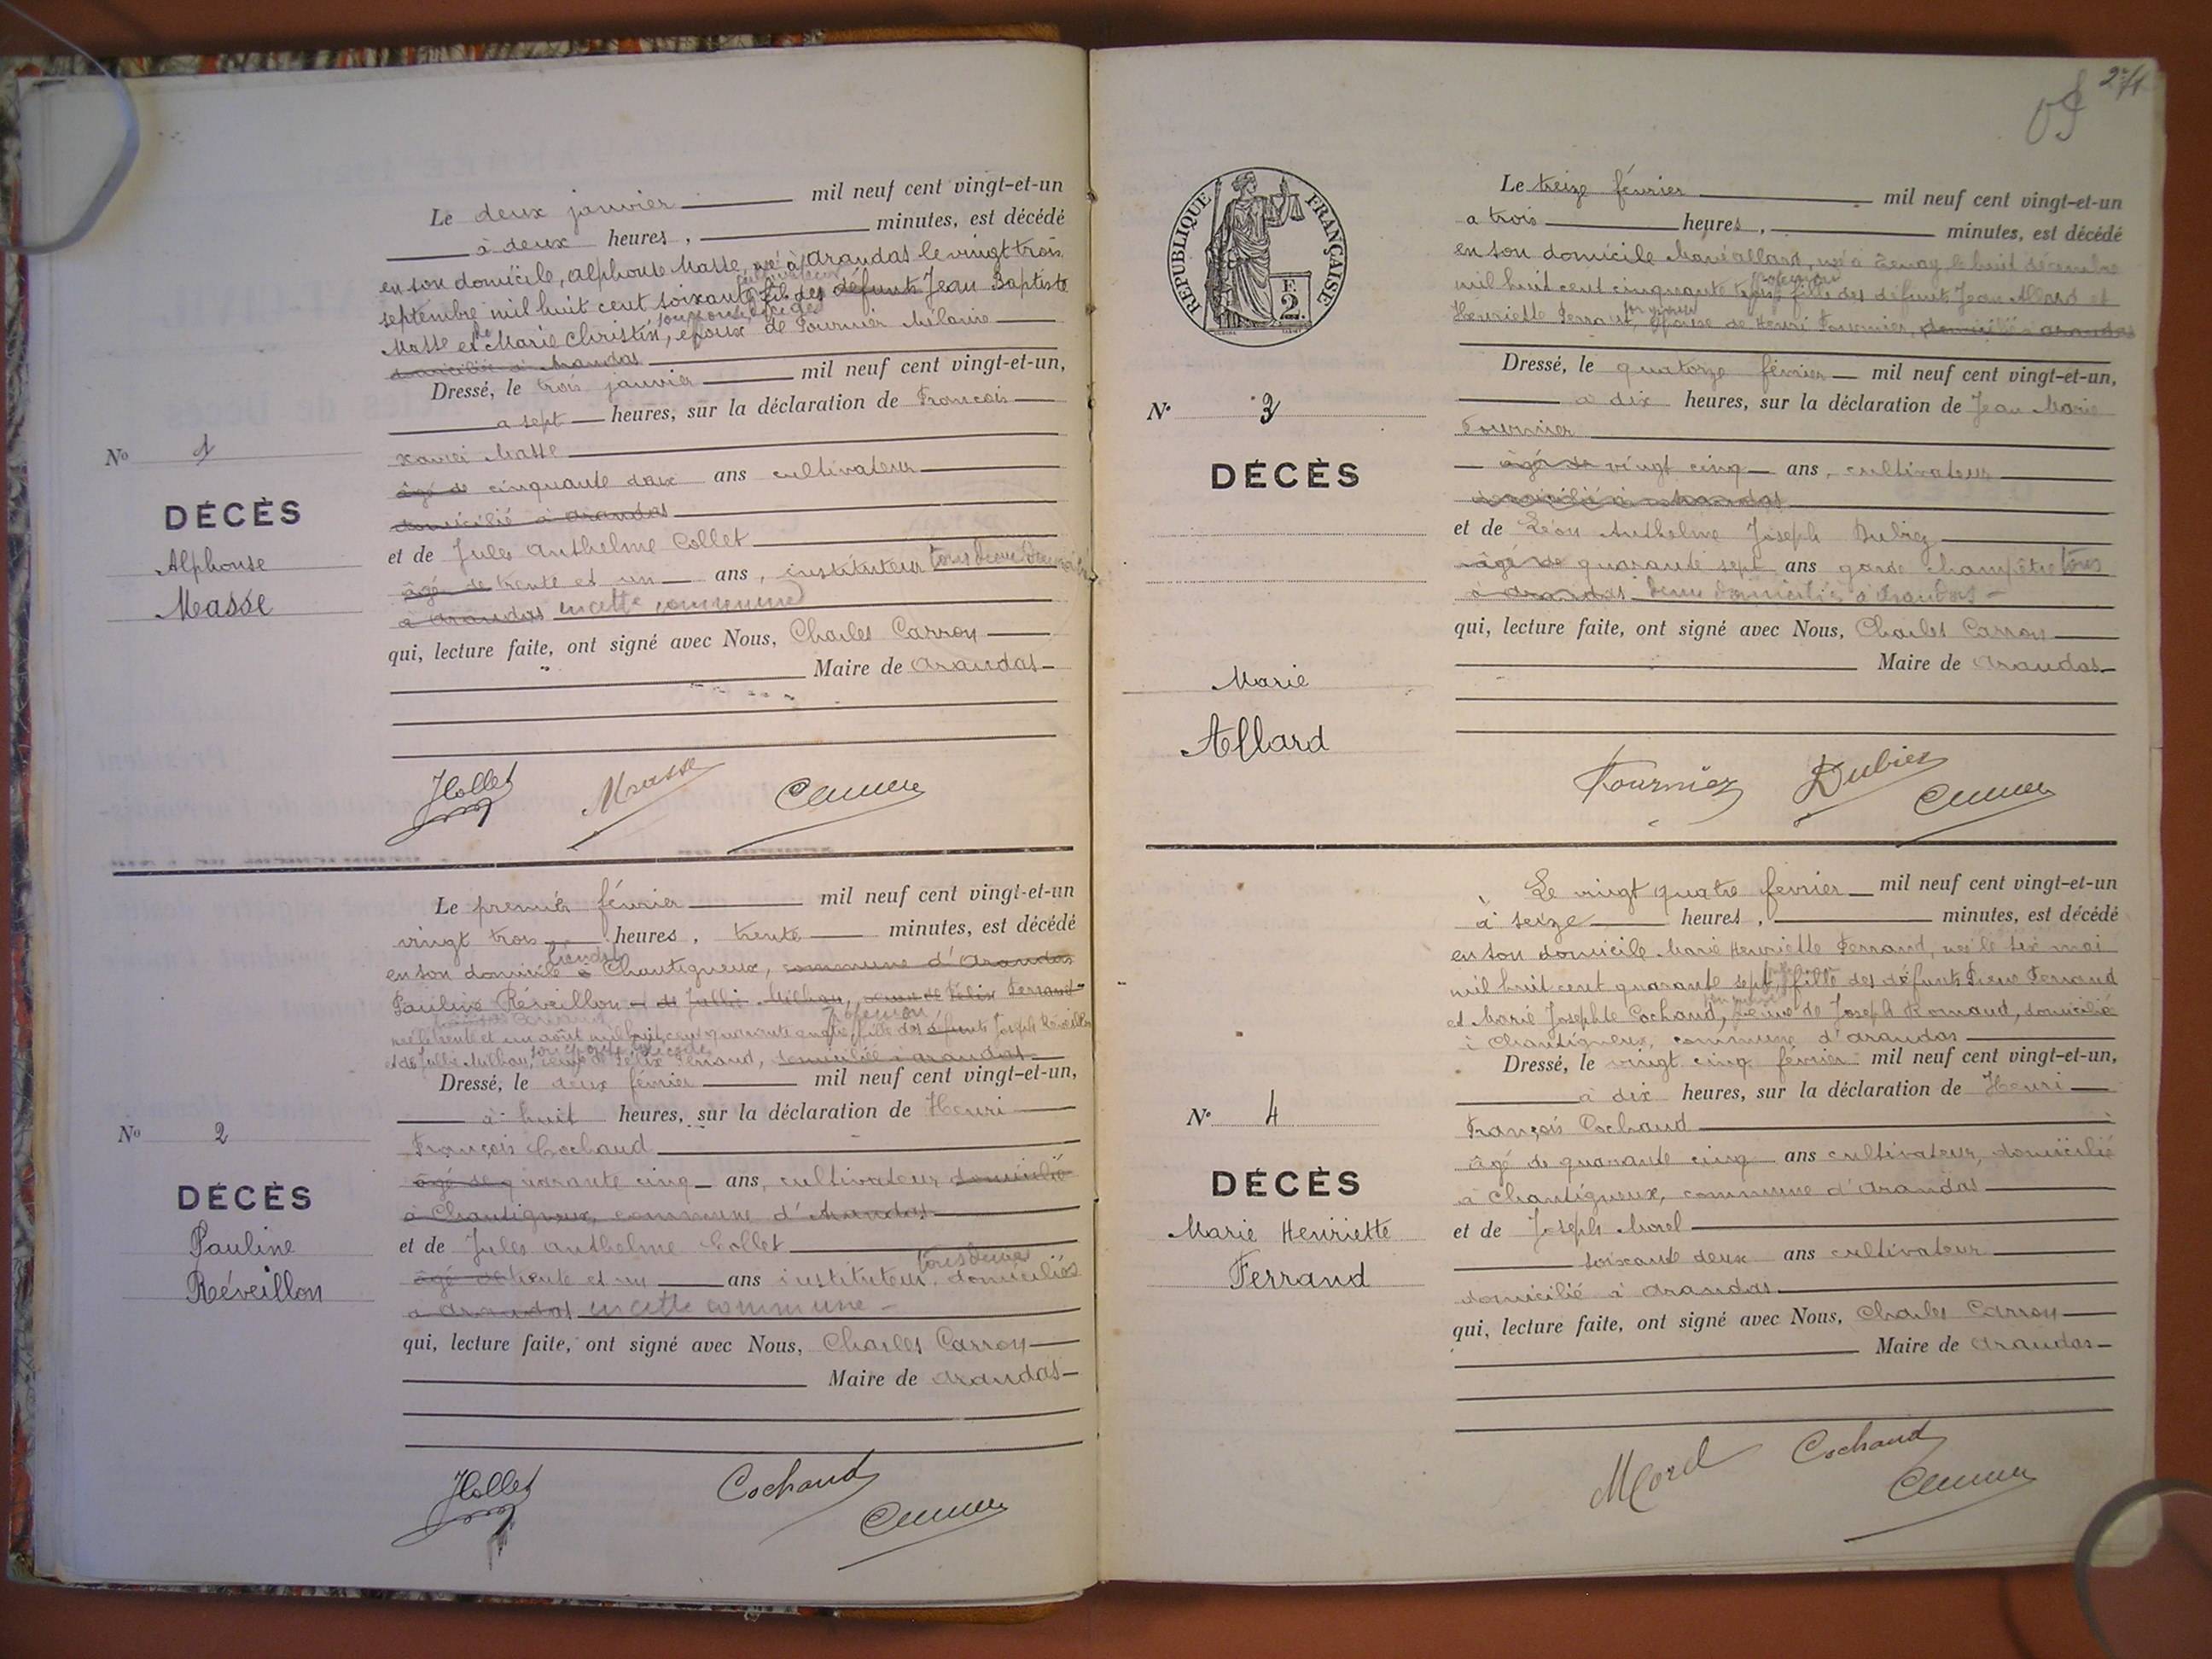 Le deux janvier mil neuf cent vingt-et-un
à deux heures, minutes, est décédé
en son domicile, Alphonse Masse, né à Arandas le vingt trois
septembre mil huit cent soixante fils des défunts Jean Baptiste
Masse et de Marie Christin, époux de Fournier Mélanie
domicilié à Arandas
Dressé, le trois janvier mil neuf cent vingt-et-un,
à sept heures, sur la déclaration de François
Xavier Masse
âgé de cinquante deux ans cultivateur
domicilié à Arandas
et de Jules Anthelme Collet
âgé de trente et un ans, instituteur tous deux
à Arandas en cette commune
qui, lecture faite, ont signé avec Nous, Charles Carron
Maire de Arandas
No 1
DÉCÈS
Alphonse
Masse
JCollet Masse
Le premier février mil neuf cent vingt-et-un
vingt trois heures, trente minutes, est décédé
en son domicile à Chantigneux, commune d'Arandas
Pauline Réveillon et de Julie Milhau, veuve de Félix Ferrand
née le trente et un août mil huit cent quarante quatre, fille des défunts Joseph Réveillon
et de Julie Milhau, veuve de Félix Ferrand, domiciliée à Arandas
Dressé, le deux février mil neuf cent vingt-et-un,
à huit heures, sur la déclaration de Henri
François Cochaud
âgé de quarante cinq ans, cultivateur domicilié
à Chantigneux, commune d'Arandas
et de Jules Anthelme Collet
tous deux
âgé de trente et un ans instituteur, domiciliés
à Arandas en cette commune
qui, lecture faite, ont signé avec Nous, Charles Carron
Maire de Arandas
No 2
DÉCÈS
Pauline
Réveillon
JCollet Cochaud
271
RÉPUBLIQUE FRANÇAISE
F.
2.
Le treize février mil neuf cent vingt-et-un
à trois heures, minutes, est décédé
en son domicile Marie Allard, née à Tenay, le huit décembre
profession
mil huit cent cinquante trois, fille des défunts Jean Allard et
Henriette Ferrand, épouse de Henri Fournier, domiciliée à Arandas
Dressé, le quatorze février mil neuf cent vingt-et-un,
à dix heures, sur la déclaration de Jean Marie
Fournier
âgé de vingt cinq ans, cultivateur
domicilié à Arandas
et de Léon Anthelme Joseph Dubiez
âgé de quarante sept ans garde champêtre tous
à Arandas deux domiciliés à Arandas
qui, lecture faite, ont signé avec Nous, Charles Carron
Maire de Arandas
N° 3
DÉCÈS
Marie
Allard
Fournier Dubiez
Le vingt quatre février mil neuf cent vingt-et-un
à seize heures, minutes, est décédé
en son domicile Marie Henriette Ferrand, née le six mai
mil huit cent quarante sept, fille des défunts Pierre Ferrand
et Marie Josephte Cochaud, veuve de Joseph Romand, domiciliée
à Chantigneux, commune d'Arandas
Dressé, le vingt cinq février mil neuf cent vingt-et-un,
à dix heures, sur la déclaration de Henri
François Cochaud
âgé de quarante cinq ans cultivateur, domicilié
à Chantigneux, commune d'Arandas
et de Joseph Morel
soixante deux ans cultivateur
domicilié à Arandas
qui, lecture faite, ont signé avec Nous, Charles Carron
Maire de Arandas
N° 4
DÉCÈS
Marie Henriette
Ferrand
Morel Cochaud